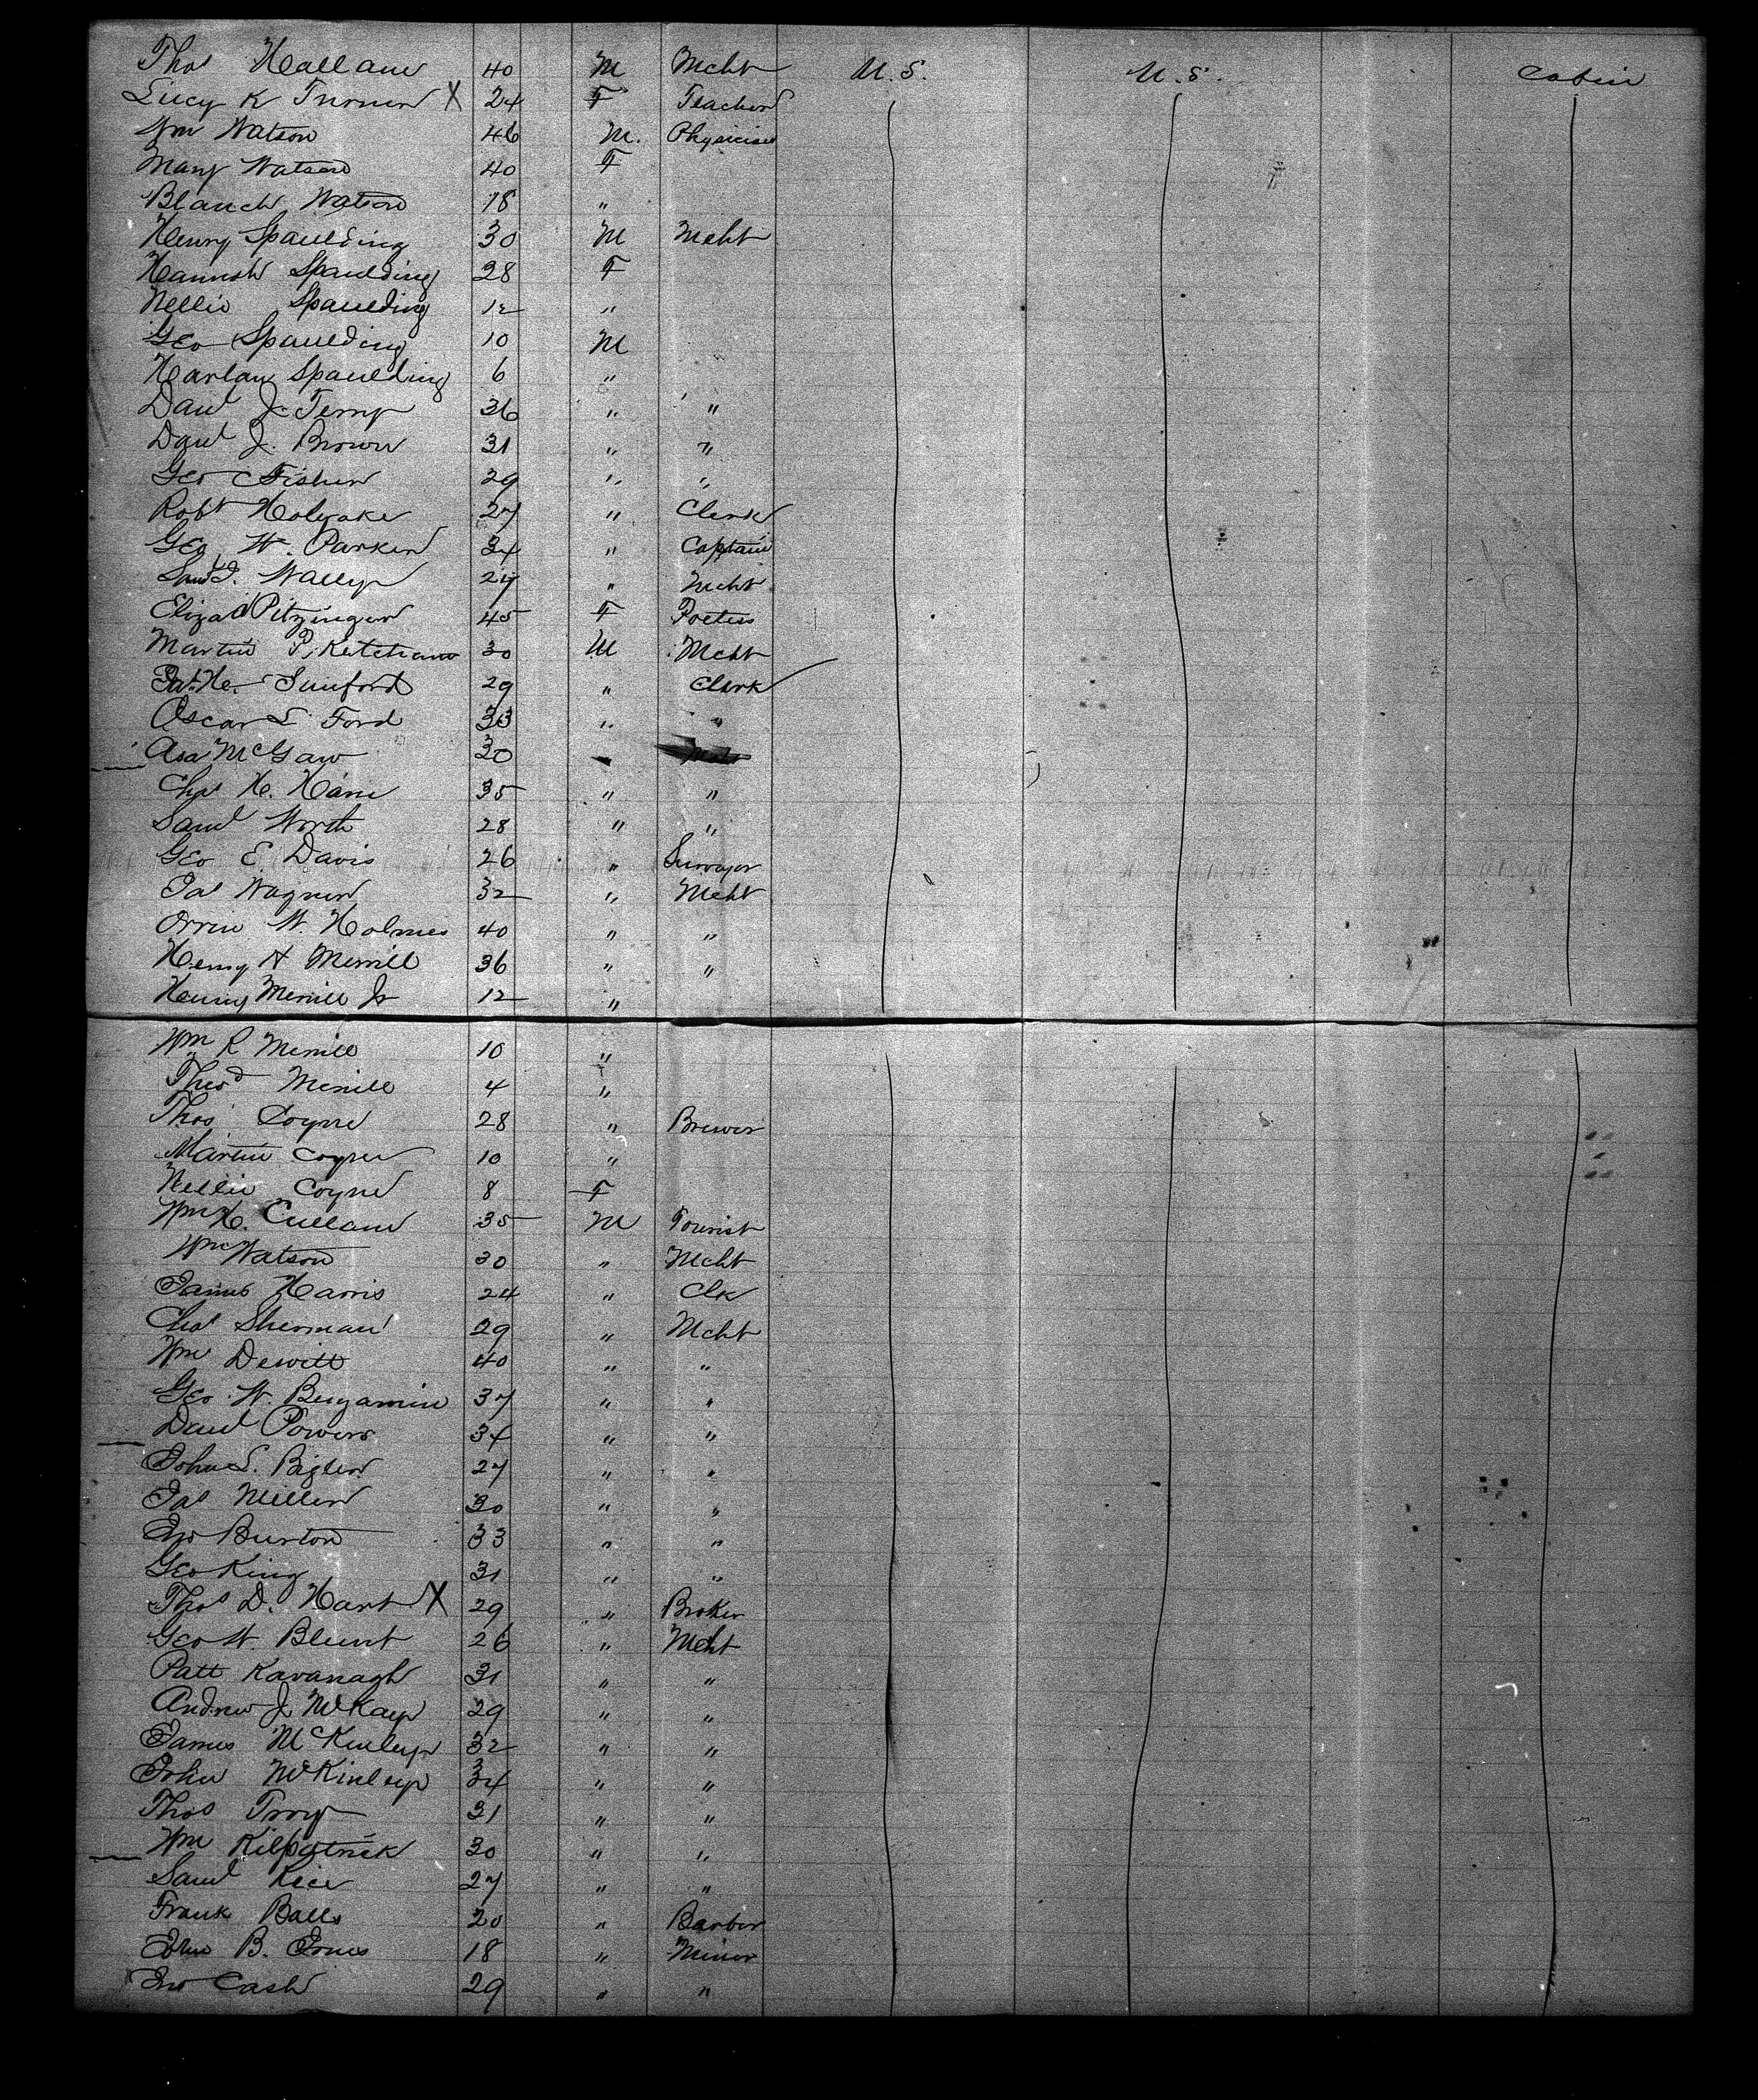 Thos Hallam 40 M Mcht U.S. U.S. Cabin
Lucy K Turner X 24 F Teacher
Wm Watson 46 M. Physician
Mary Watson 40 F
Blanch Watson 18 "
Henry Spaulding 30 M Mcht
Hannah Spaulding 28 F
Nellie Spaulding 12 "
Geo Spaulding 10 M
Harlan Spaulding 6 "
Danl J. Terry 36 " "
Danl J. Brown 31 " "
Geo Fisher 29 " "
Robt Holyoke 27 " Clerk
Geo W. Parker 34 " Captain
Saml 27 " Mcht
Eliza Pitzinger 45 F Poetess
Martin P. Ketcham 30 M Mcht
Sunford 29 " Clerk
Oscar L. Ford 33 " "
Asa McGaw 30 "
Chas H. 35 " "
Saml North 28 " "
Geo E. Davis 26 " Surveyor
Jas Wagner 32 " Mcht
Orrin W. Holmes 40 " "
Henry H Merrill 36 " "
Henry Merrill Jr 12 "
Wm R Merrill 10 "
Theod Merrill 4 "
Thos Coyne 28 " Brewer
Martin Coyne 10 "
Nellie Coyne 8 F
Wm H. Cullam 35 M Tourist
Wm Watson 30 " Mcht
James Harris 24 " Clk
Chas Sherman 29 " Mcht
Wm Dewitt 40 " "
Geo W. Benjamin 37 " "
Danl Powers 34 " "
John L. Bigler 27 " "
Jas Miller 30 " "
Jno Burton 33 " "
Geo King 31 " "
Thos D. Hart X 29 " Broker
Geo W. Blunt 26 " Mcht
Patt Kavanagh 31 " "
Andrew J. McKay 29 " "
James McKinley 32 " "
John McKinley 34 " "
Thos Troy 31 " "
Wm Kilpatrick 30 " "
Saml Rice 27 " "
Frank Balls 20 " Barber
John B. Jones 18 " Miner
Jno Cash 29 " "